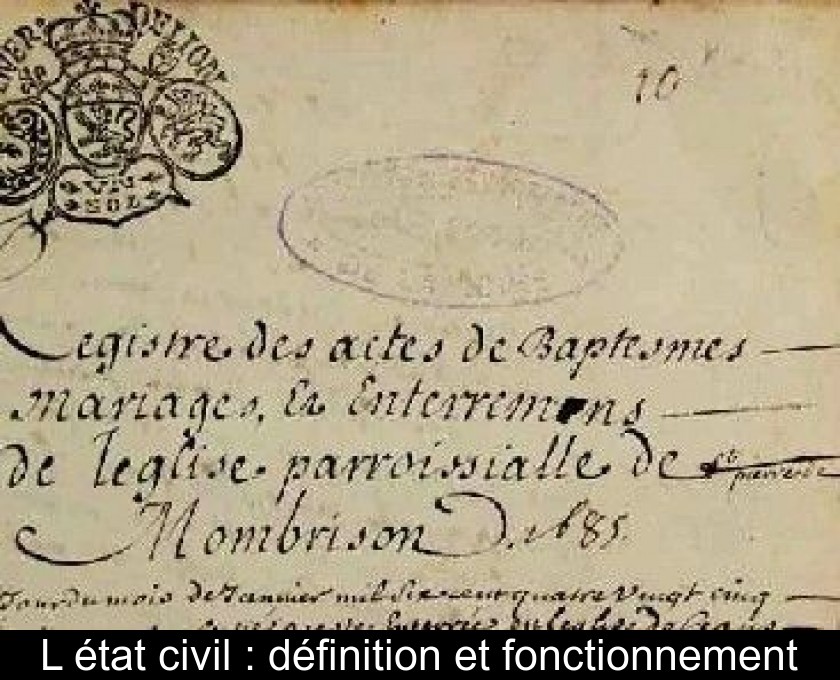 GENER. DE LION
VN
SOL
10
Registre des actes de Baptesmes
Mariages, Et Enterremens
de leglise parroissialle de St
pierre de
Mombrison D. 1685.
Jour du mois de Janvier mil six cent quatre vingt cinq
L état civil : définition et fonctionnement